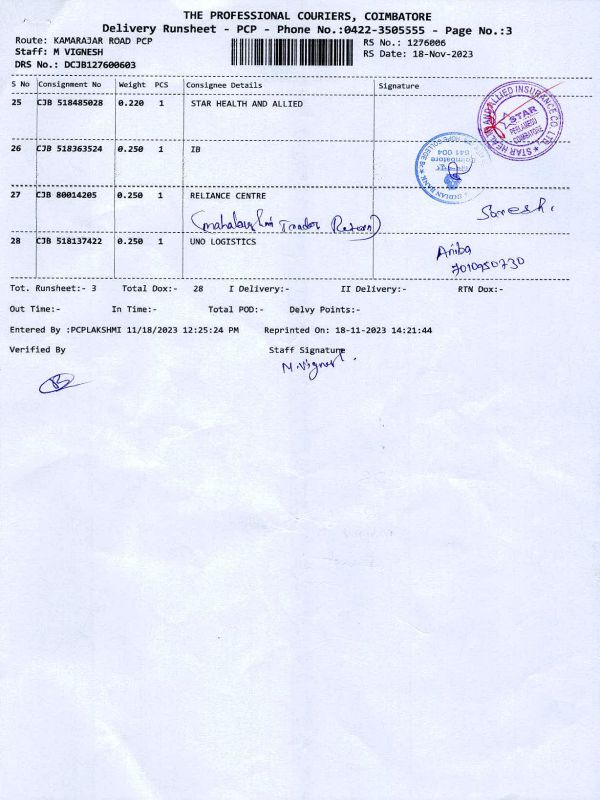 THE PROFESSIONAL COURIERS, COIMBATORE
Delivery Runsheet - PCP - Phone No.:0422-3505555 - Page No.:3
Route: KAMARAJAR ROAD PCP RS No.: 1276006
Staff: M VIGNESH RS Date: 18-Nov-2023
DRS No.: DCJB127600603
S No Consignment No Weight PCS Consignee Details Signature
25 CJB 518485028 0.220 1 STAR HEALTH AND ALLIED
STAR HEALTH AND ALLIED INSURANCE CO. LTD.
STAR
PEELAMEDU
COIMBATORE
26 CJB 518363524 0.250 1 IB
INDIAN BANK
COLLEGE Br.
Coimbatore
641 004
27 CJB 80014205 0.250 1 RELIANCE CENTRE
(mahalaxmi Trader Return) Suresh.
28 CJB 518137422 0.250 1 UNO LOGISTICS
7010950730
Tot. Runsheet:- 3 Total Dox:- 28 I Delivery:- II Delivery:- RTN Dox:-
Out Time:- In Time:- Total POD:- Delvy Points:-
Entered By :PCPLAKSHMI 11/18/2023 12:25:24 PM Reprinted On: 18-11-2023 14:21:44
Verified By Staff Signature
M.Vignesh.